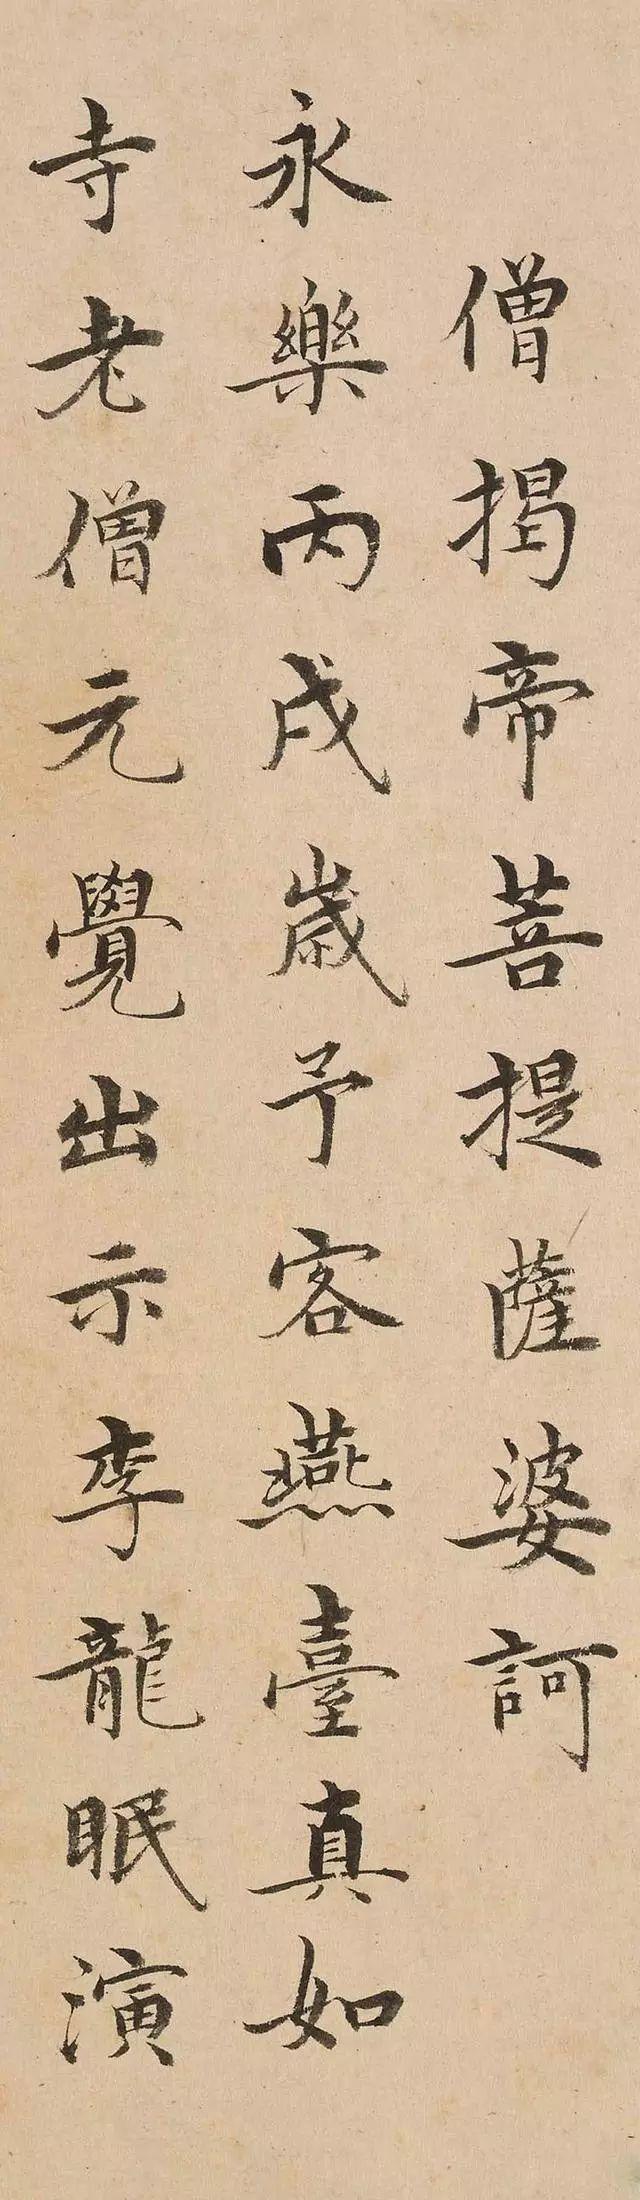 僧揭帝菩提薩婆訶
永樂丙戌歲予客燕臺真如
寺老僧元覺出示李龍眠演